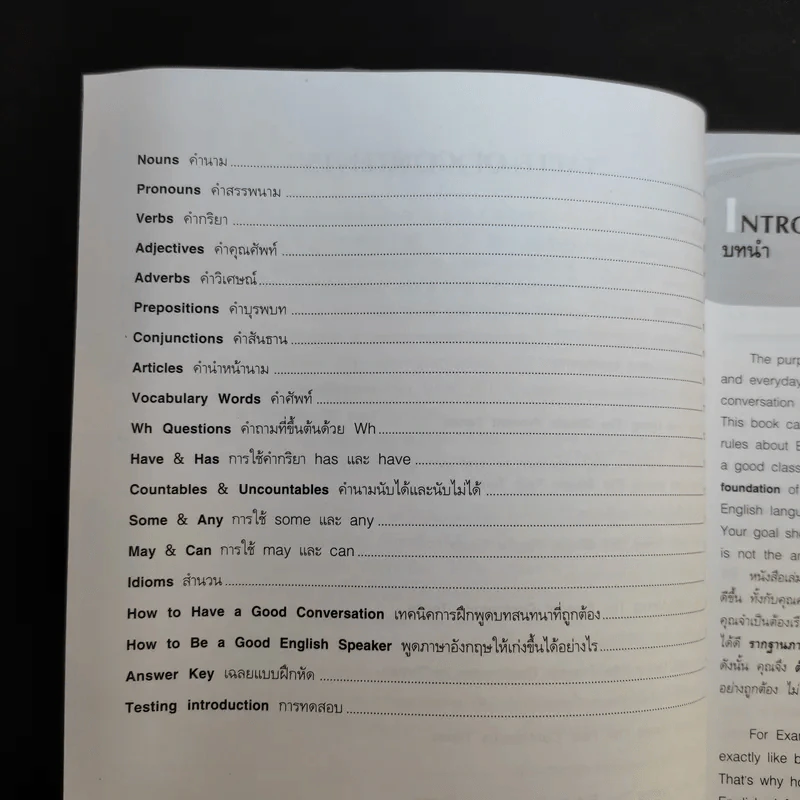 Nouns คำนาม
Pronouns คำสรรพนาม
Verbs คำกริยา
Adjectives คำคุณศัพท์
Adverbs คำวิเศษณ์
Prepositions คำบุรพบท
Conjunctions คำสันธาน
Articles คำนำหน้านาม
Vocabulary Words คำศัพท์
Wh Questions คำถามที่ขึ้นต้นด้วย Wh
Have & Has การใช้คำกริยา has และ have
Countables & Uncountables คำนามนับได้และนับไม่ได้
Some & Any การใช้ some และ any
May & Can การใช้ may และ can
Idioms สำนวน
How to Have a Good Conversation เทคนิคการฝึกพูดบทสนทนาที่ถูกต้อง
How to Be a Good English Speaker พูดภาษาอังกฤษให้เก่งขึ้นได้อย่างไร
Answer Key เฉลยแบบฝึกหัด
Testing introduction การทดสอบ
INTRO
บทนำ
The purp
and everyday
conversation
This book ca
rules about E
a good class
foundation of
English langu
Your goal sh
is not the an
หนังสือเล่ม
ดีขึ้น ทั้งกับคุณค
คุณจำเป็นต้องเรี
ได้ดี รากฐานภา
ดังนั้น คุณจึง
อย่างถูกต้อง ไม่
For Exam
exactly like b
That's why ho